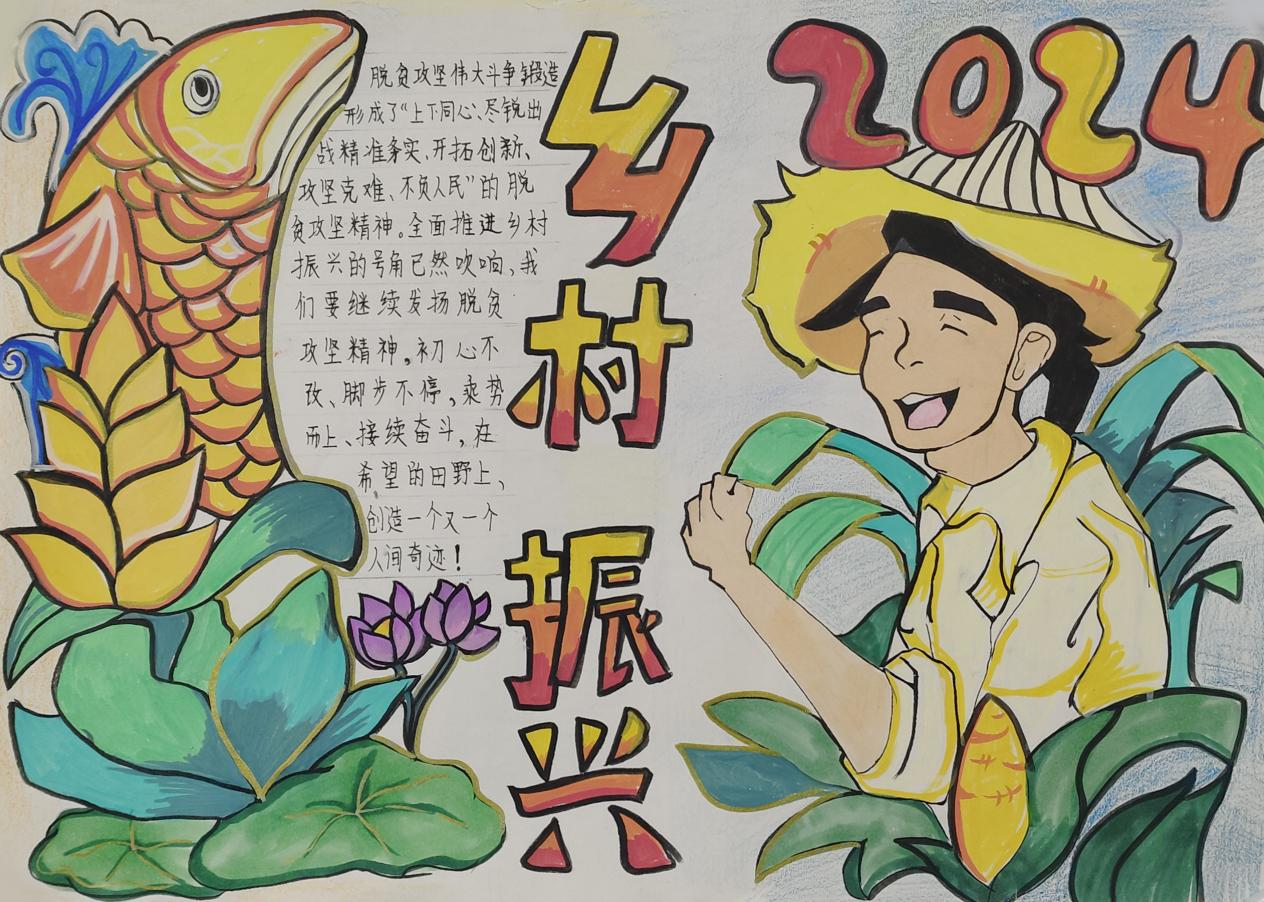 脱贫攻坚伟大斗争锻造
形成了“上下同心、尽锐出
战精准务实、开拓创新、
攻坚克难、不负人民”的脱
贫攻坚精神。全面推进乡村
振兴的号角已然吹响,我
们要继续发扬脱贫
攻坚精神,初心不
改、脚步不停,乘势
而上、接续奋斗,在
希望的田野上、
创造一个又一个
人间奇迹!
乡村振兴
2024